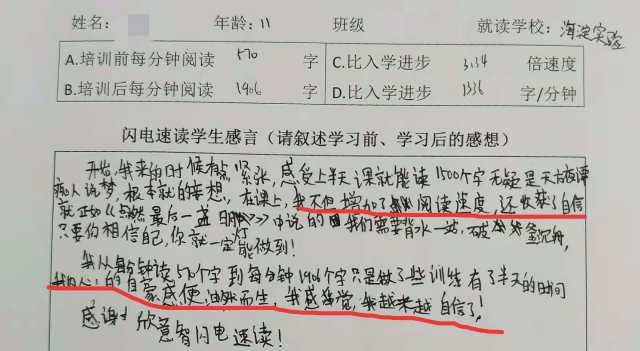 姓名： 年龄：11 班级 就读学校：海淀实验
A.培训前每分钟阅读 570 字 C.比入学进步 3.34 倍速度
B.培训后每分钟阅读 1906 字 D.比入学进步 1336 字/分钟
闪电速读学生感言（请叙述学习前、学习后的感想）
开始，我来的时候有点紧张，感觉上半天课就能读1500个字无疑是天方夜谭
痴人说梦，根本就的妄想，在课上，我不但增加了阅读速度，还收获了自信
就正如《点燃最后一盏日》中说的我们需要背水一站，破釜沉舟，
只要你相信自己，你就一定能做到！
我从每分钟读570个字到每分钟1906个字只是做了些训练有了半天的时间
我内心的自豪感便油然而生，我感觉，我越来越自信了！
感谢欣意智闪电速读！